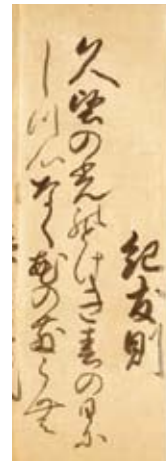 紀友則
久堅の光のとけき春の日に
しつ心なく花のちるらむ